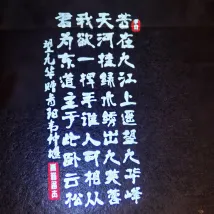 昔在九江上遥望九华峰
天河挂绿水绣出九芙蓉
我欲一挥手谁人可相从
君为东道主于此卧云松
望九华赠青阳韦仲堪